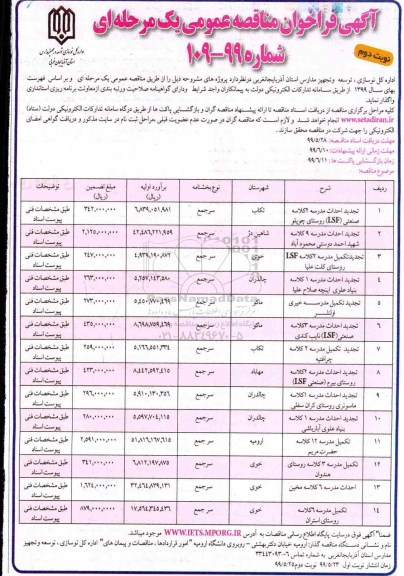 آگهی فراخوان مناقصه عمومی یک مرحله ای
شماره ۹۹-۱۰۹
نوبت دوم
اداره کل نوسازی، توسعه و تجهیز مدارس استان آذربایجانغربی درنظردارد پروژه های مشروحه ذیل را از طریق مناقصه عمومی یک مرحله ای و بر اساس فهرست
بهای سال ۱۳۹۹ از طریق سامانه تدارکات الکترونیکی دولت به پیمانکاران واجد شرایط ودارای گواهینامه صلاحیت ورتبه بندی ازمعاونت برنامه ریزی استانداری
واگذار نماید.
کلیه مراحل برگزاری مناقصه از دریافت اسناد مناقصه تا ارائه پیشنهاد مناقصه گران و بازگشایی پاکت ها از طریق درگاه سامانه تدارکات الکترونیکی دولت (ستاد)
www.setadiran.ir انجام خواهد شد و لازم است که مناقصه گران در صورت عدم عضویت قبلی ،مراحل ثبت نام در سایت مذکور و دریافت گواهی امضای
الکترونیکی را جهت شرکت در مناقصه محقق سازند.
مهلت دریافت اسناد مناقصه: ۹۹/۵/۲۸
مهلت زمانی ارائه پیشنهادات: ۹۹/۶/۱۰
زمان بازگشایی پاکت ها: ۹۹/۶/۱۱
موضوع مناقصه:
ردیف شرح شهرستان نوع بخشنامه برآورد اولیه (ریال) مبلغ تضمین (ریال) توضیحات
۱ تجدید احداث مدرسه ۲کلاسه صنعتی (LSF) روستای چوپلو تکاب سرجمع ۶,۸۳۹,۰۵۱,۹۸۱ ۳۴۲,۰۰۰,۰۰۰ طبق مشخصات فنی پیوست اسناد
۲ تجدید احداث مدرسه ۹ کلاسه شهید احمد دوستی محمود آباد شاهین دژ سرجمع ۴۲,۴۸۶,۲۲۱,۹۵۹ ۲,۱۲۵,۰۰۰,۰۰۰ طبق مشخصات فنی پیوست اسناد
۳ تجدیدتکمیل مدرسه ۲کلاسه LSF روستای کلت علیا خوی سرجمع ۴,۹۳۹,۱۹۰,۸۷۲ ۲۴۷,۰۰۰,۰۰۰ طبق مشخصات فنی پیوست اسناد
۴ تجدید احداث مدرسه ۱ کلاسه بنیاد علوی اینچه صلاح علیا چالدران سرجمع ۵,۲۵۷,۱۴۳,۵۸۰ ۲۶۳,۰۰۰,۰۰۰ طبق مشخصات فنی پیوست اسناد
۵ تجدید تکمیل مدرســـه خیری ماکو سرجمع ۵,۴۵۰,۷۷۰,۴۹۶ ۲۷۳,۰۰۰,۰۰۰ طبق مشخصات فنی پیوست اسناد
۶ تجدید احداث مدرسه ۳کلاسه صنعتی(LSF) نایب کندی ماکو سرجمع ۸,۶۹۸,۷۵۹,۴۷۹ ۴۳۵,۰۰۰,۰۰۰ طبق مشخصات فنی پیوست اسناد
۷ تجدید تکمیل مدرسه ۲ کلاسه چراغتپه تکاب سرجمع ۵,۱۶۶,۵۵۱,۳۳۴ ۲۵۹,۰۰۰,۰۰۰ طبق مشخصات فنی پیوست اسناد
۸ تجدید احداث مدرسه ۲کلاسه روستای بیرم (صنعتی LSF) مهاباد سرجمع ۸,۴۴۲,۵۹۲,۴۱۵ ۴۲۳,۰۰۰,۰۰۰ طبق مشخصات فنی پیوست اسناد
۹ تجدید احداث مدرسه ۲کلاسه ماسونری روستای کران سفلی چالدران سرجمع ۵,۹۱۰,۱۳۰,۳۵۶ ۲۹۶,۰۰۰,۰۰۰ طبق مشخصات فنی پیوست اسناد
۱۰ تجدید احداث مدرسه ۱ کلاسه بنیاد علوی آبارباشی چالدران سرجمع ۵,۵۹۷,۷۰۴,۱۱۵ ۲۸۰,۰۰۰,۰۰۰ طبق مشخصات فنی پیوست اسناد
۱۱ تکمیل مدرسه ۱۲ کلاسه حضرت مریم ارومیه سرجمع ۵۱,۸۱۶,۱۷۰,۶۱۵ ۲,۵۹۱,۰۰۰,۰۰۰ طبق مشخصات فنی پیوست اسناد
۱۲ تکمیل مدرسه ۳ کلاسه روستای هندوان خوی سرجمع ۶,۸۱۲,۱۹۷,۸۷۵ ۳۴۱,۰۰۰,۰۰۰ طبق مشخصات فنی پیوست اسناد
۱۳ احداث مدرسه ۶ کلاسه مخین خوی سرجمع ۳۲,۴۶۴,۸۳۹,۱۳۱ ۱,۶۲۴,۰۰۰,۰۰۰ طبق مشخصات فنی پیوست اسناد
۱۴ تکمیل مدرسه ۶کلاسه روستای استران خوی سرجمع ۱۷,۵۶۴,۳۴۵,۵۳۶ ۸۷۹,۰۰۰,۰۰۰ طبق مشخصات فنی پیوست اسناد
ضمنا" آگهی فوق درسایت پایگاه اطلاع رسانی مناقصات به آدرس WWW.IETS.MPORG.IR موجود میباشد.
نام و نشانی دستگاه مناقصه گذار: ارومیه خیابان دکتربهشتی – روبروی دانشگاه ارومیه "امور قراردادها ، مناقصات و پیمان های " اداره کل نوسازی ، توسعه و تجهیز
مدارس استان آذربایجانغربی به شماره تماس ۶-۳۳۴۴۳۰۹۳
زمان انتشار نوبت اول ۹۹/۵/۲۳ نوبت دوم ۹۹/۵/۲۵